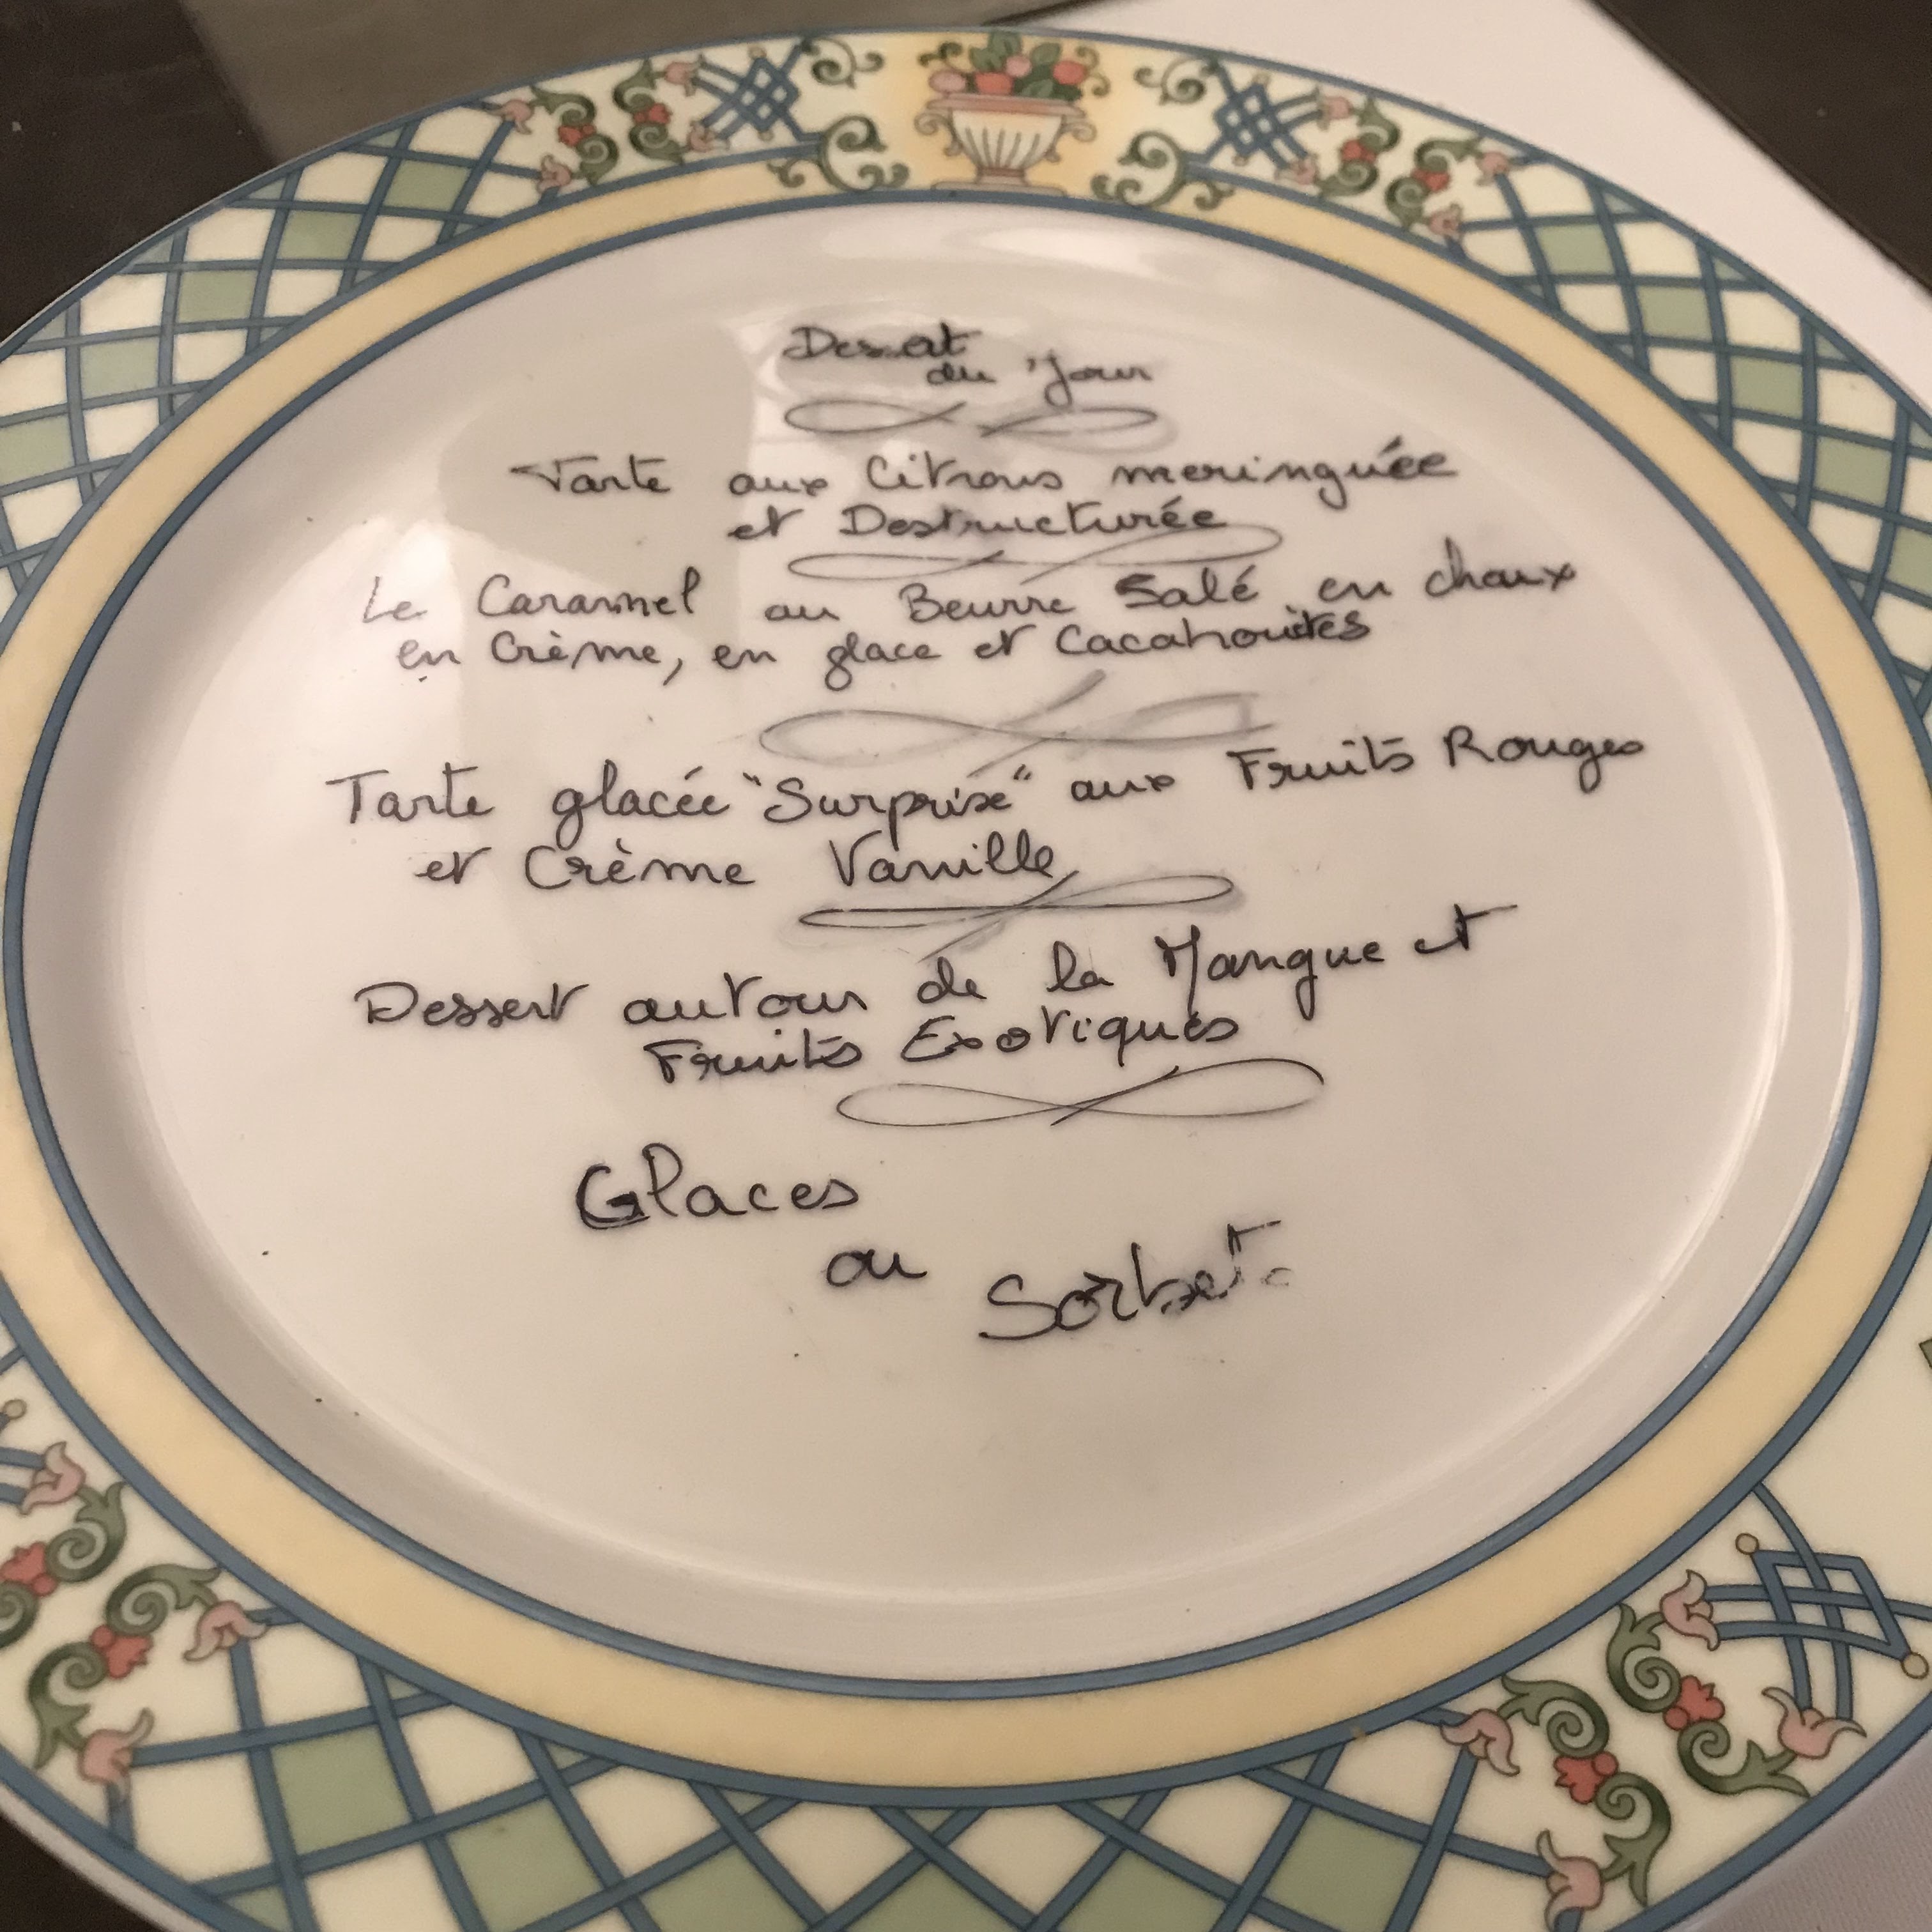 Dessert
du Jour
Tarte aux Citrons meringuée
et Destructurée
Le Caramel au Beurre Salé en chaux
en Crème, en glace et Cacahouètes
Tarte glacée "Surprise" aux Fruits Rouges
et Crème Vanille
Dessert autour de la Mangue et
Fruits Exotiques
Glaces
ou
Sorbets